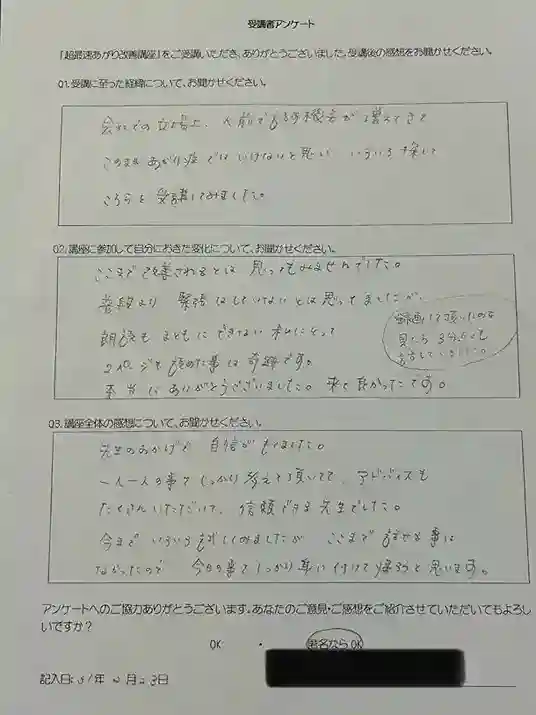 受講者アンケート
『超最速あがり改善講座』をご受講いただき、ありがとうございました。受講後の感想をお聞かせください。
Q1.受講に至った経緯について、お聞かせください。
会社での立場上、人前で話す機会が増えてきて
このままあがり症ではいけないと思い いろいろ探して
こちらを受講してみました。
Q2.講座に参加して自分におきた変化について、お聞かせください。
ここまで改善されるとは思ってもみませんでした。
普段より 緊張はしていないとは思ってましたが、
朗読も まともにできない私にとって
2ページを読めた事は奇跡です。
本当にありがとうございました。来て良かったです。
録画して頂いたのを
見たら 3分以上も
話していました。
Q3.講座全体の感想について、お聞かせください。
先生のおかげで 自信がもてました。
一人一人の事を しっかり考えて頂いてて、アドバイスも
たくさんいただいて、信頼できる先生でした。
今まで いろいろ試してみましたが ここまで話せる事は
なかったので 今日の事をしっかり身に付けて帰ろうと思います。
アンケートへのご協力ありがとうございます。あなたのご意見・ご感想をご紹介させていただいてもよろし
いですか？
OK ・ 匿名ならOK
記入日:31年2月23日